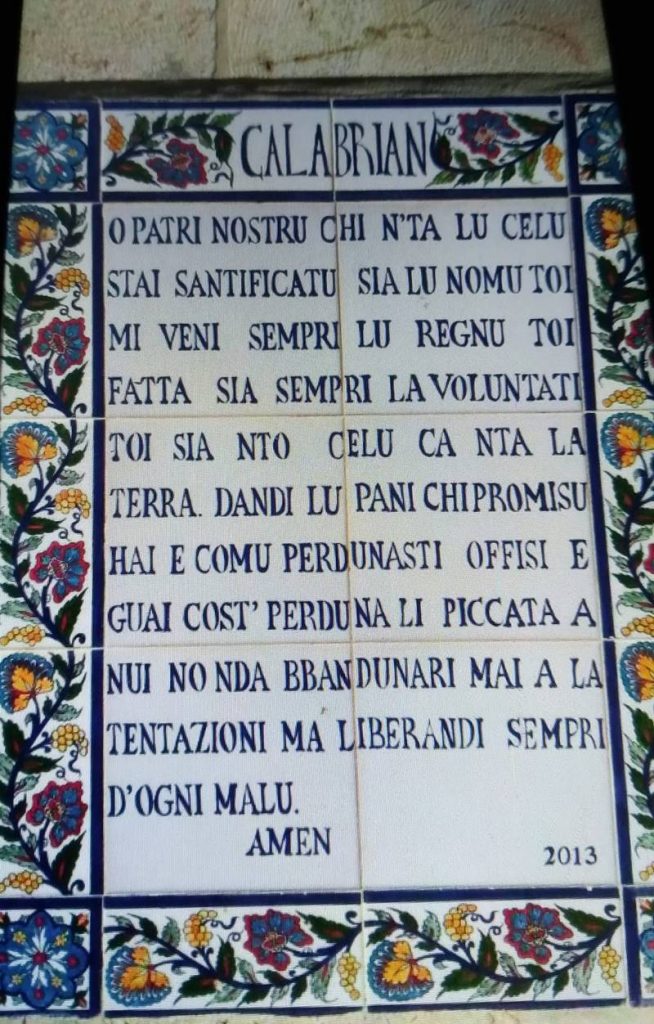 CALABRIAN
O PATRI NOSTRU CHI N'TA LU CELU
STAI SANTIFICATU SIA LU NOMU TOI
MI VENI SEMPRI LU REGNU TOI
FATTA SIA SEMPRI LA VOLUNTATI
TOI SIA NTO CELU CA NTA LA
TERRA. DANDI LU PANI CHI PROMISU
HAI E COMU PERDUNASTI OFFISI E
GUAI COST' PERDUNA LI PICCATA A
NUI NO NDA BBANDUNARI MAI A LA
TENTAZIONI MA LIBERANDI SEMPRI
D'OGNI MALU.
AMEN
2013